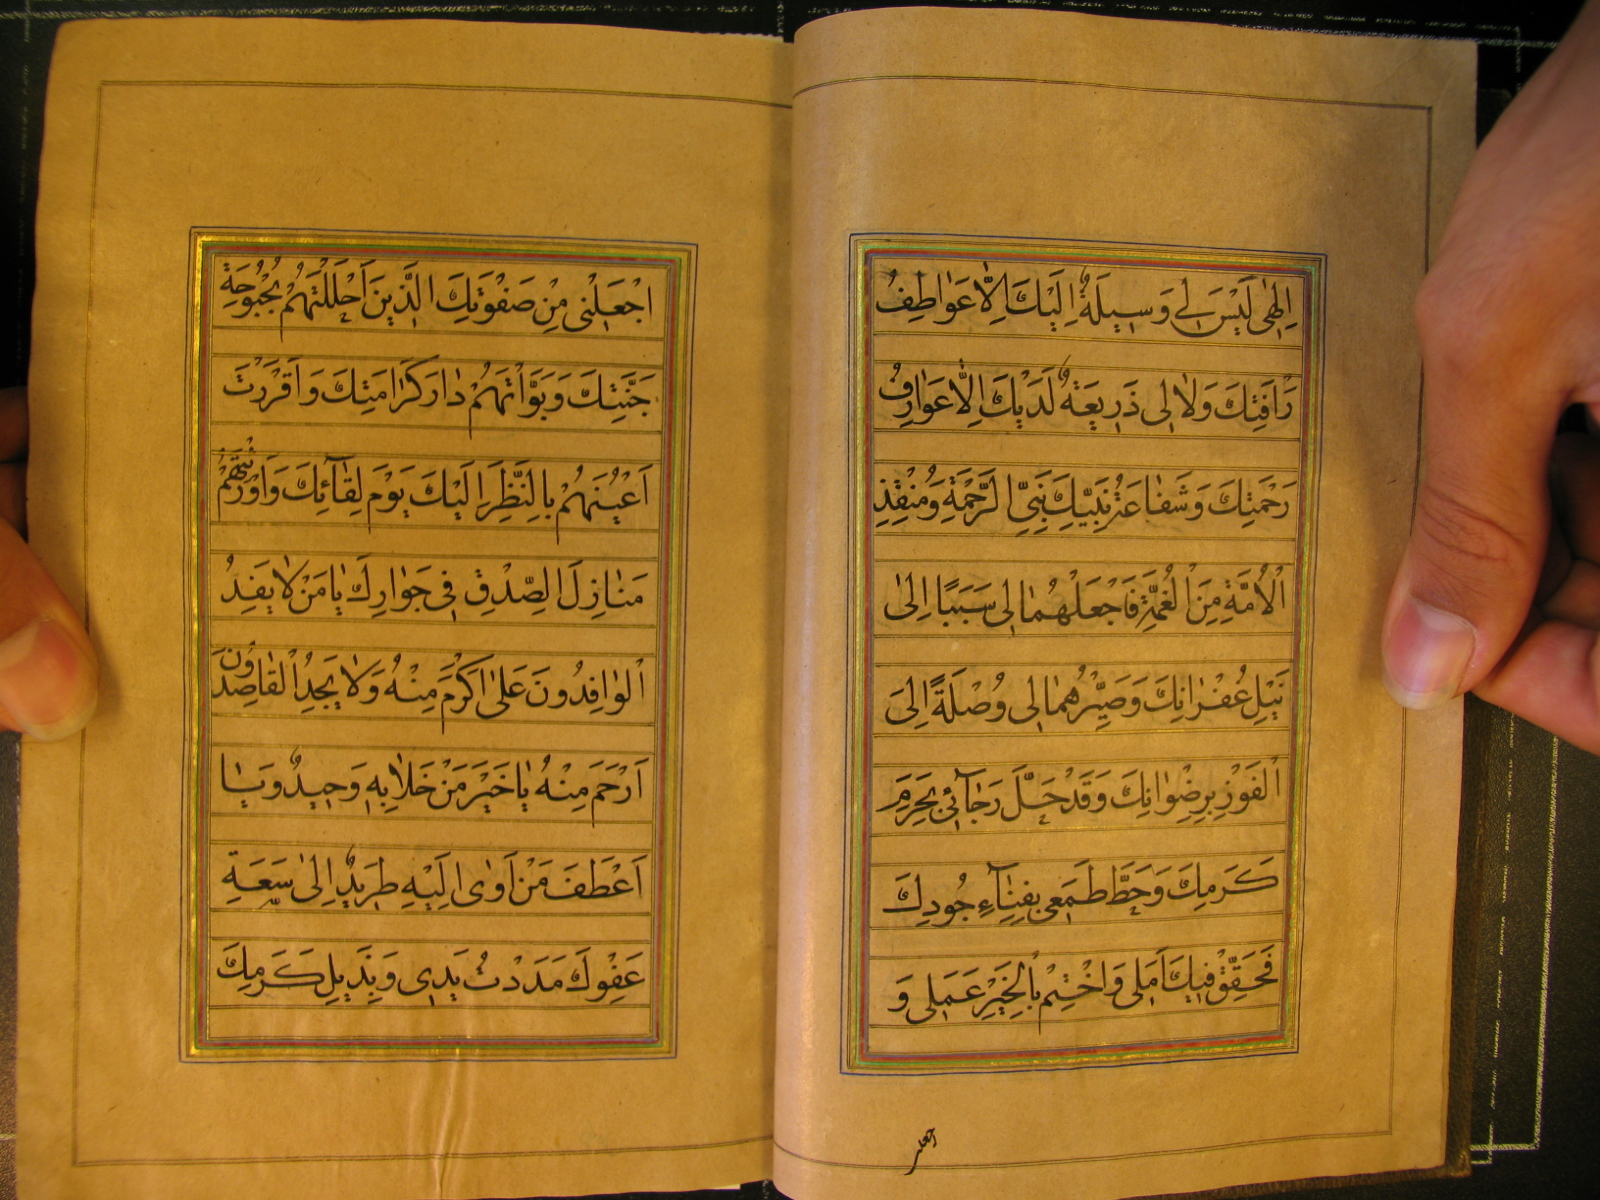 اِلٰهی لَیْسَ لی وَسیلَةٌ اِلَیْكَ اِلّٰا عَوٰاطِفُ
رَاْفَتِكَ وَلٰا لی ذَریعَةٌ لَدَیْكَ اِلّٰا عَوٰارِفُ
رَحْمَتِكَ وَشَفٰاعَةُ نَبِیِّكَ نَبِیِّ الرَّحْمَةِ وَمُنْقِذِ
الْاُمَّةِ مِنَ الْغُمَّةِ فَاجْعَلْهُمٰا لی سَبَبًا اِلیٰ
نَیْلِ غُفْرٰانِكَ وَصَیِّرْهُمٰا لی وُصْلَةً اِلَی
الْفَوْزِ بِرِضْوٰانِكَ وَقَدْ حَلَّ رَجٰآئی بِحَرَمِ
كَرَمِكَ وَحَطَّ طَمَعی بِفِنٰآءِ جُودِكَ
فَحَقِّقْ فیكَ اَمَلی وَاخْتِمْ بِالْخَیْرِ عَمَلی وَ
اجْعَلْنی مِنْ صَفْوَتِكَ الَّذینَ اَحْلَلْتَهُمْ بُحْبُوحَةَ
جَنَّتِكَ وَبَوَّاْتَهُمْ دٰارَ كَرٰامَتِكَ وَاَقْرَرْتَ
اَعْیُنَهُمْ بِالنَّظَرِ اِلَیْكَ یَوْمَ لِقٰآئِكَ وَاَوْرَثْتَهُمْ
مَنٰازِلَ الصِّدْقِ فی جَوٰارِكَ یٰا مَنْ لٰا یَفِدُ
الْوٰافِدُونَ عَلیٰ اَكْرَمَ مِنْهُ وَلٰا یَجِدُ الْقٰاصِدُونَ
اَرْحَمَ مِنْهُ یٰا خَیْرَ مَنْ خَلٰا بِهِ وَحیدٌ وَیٰا
اَعْطَفَ مَنْ اَوٰی اِلَیْهِ طَریدٌ اِلیٰ سَعَةِ
عَفْوِكَ مَدَدْتُ یَدی وَبِذَیْلِ كَرَمِكَ